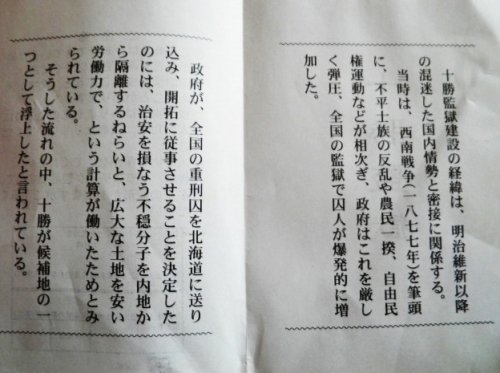 十勝監獄建設の経緯は、明治維新以降
の混迷した国内情勢と密接に関係する。
当時は、西南戦争(一八七七年)を筆頭
に、不平士族の反乱や農民一揆、自由民
権運動などが相次ぎ、政府はこれを厳し
く弾圧、全国の監獄で囚人が爆発的に増
加した。
政府が、全国の重刑囚を北海道に送り
込み、開拓に従事させることを決定した
のには、治安を損なう不穏分子を内地か
ら隔離するねらいと、広大な土地を安い
労働力で、という計算が働いたためとみ
られている。
そうした流れの中、十勝が候補地の一
つとして浮上したと言われている。